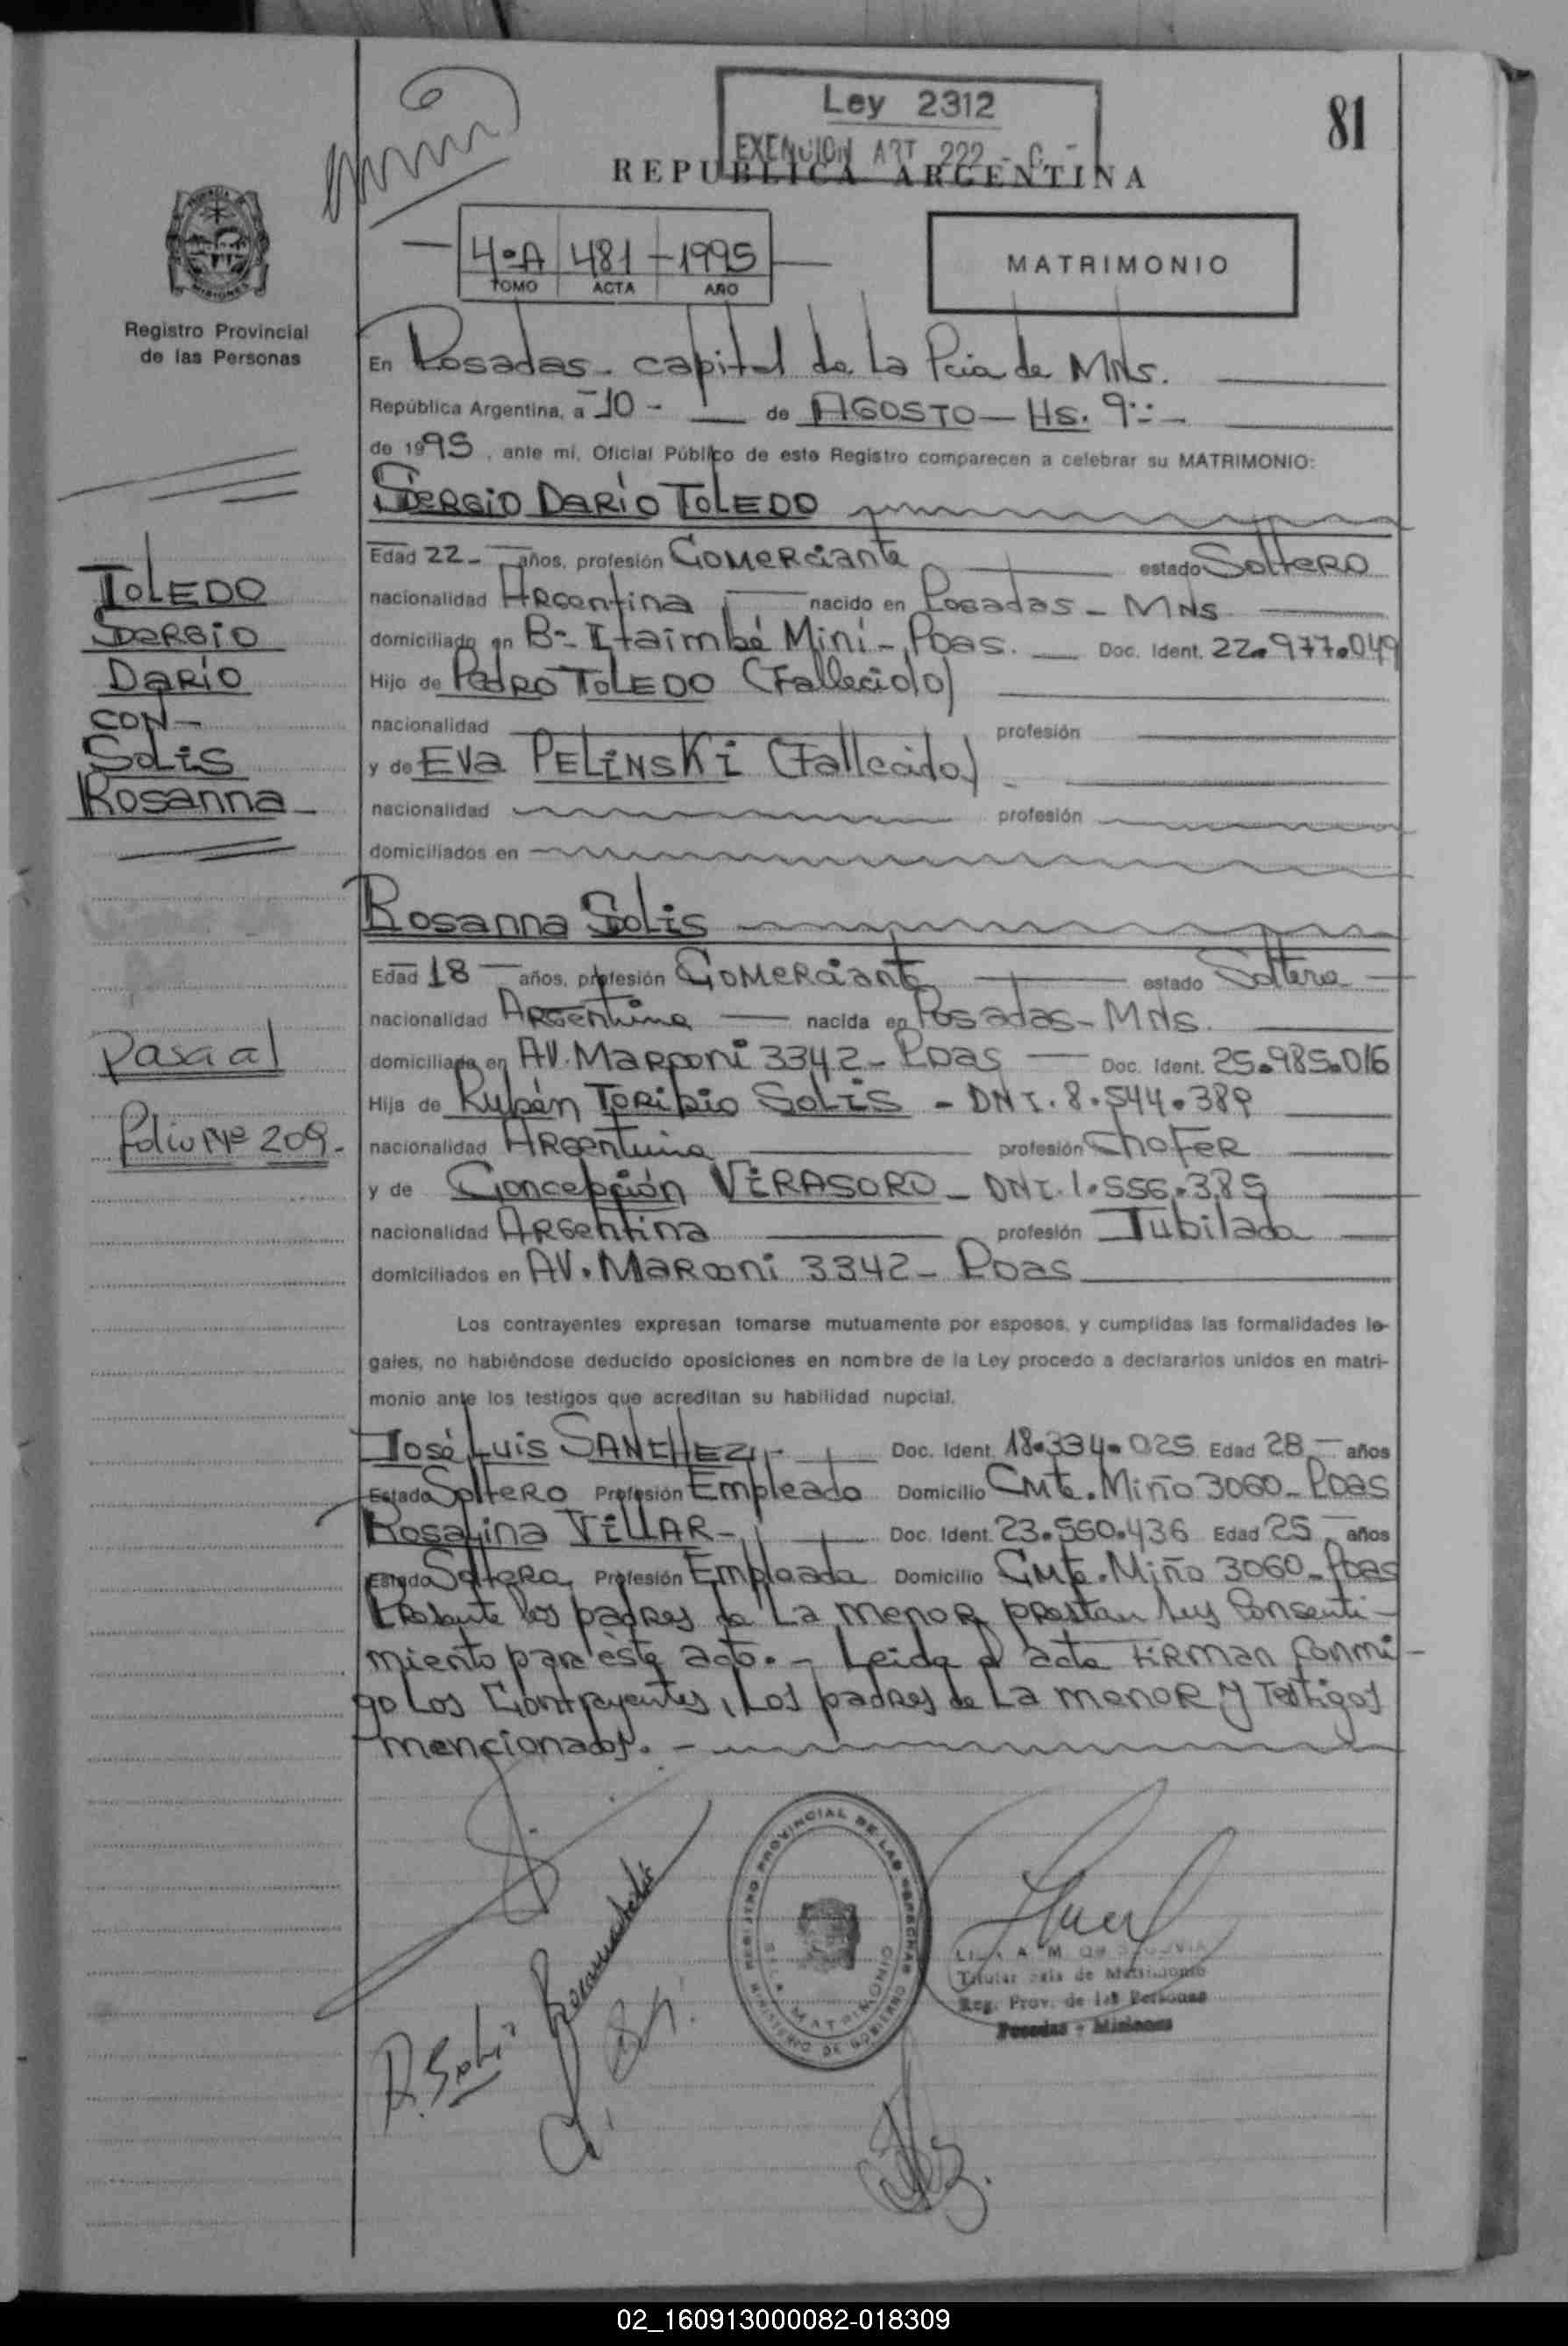 Ley 2312
EXENCION ART 222 - C -
81
REPUBLICA ARGENTINA
4º A 481 - 1995
TOMO ACTA AÑO
MATRIMONIO
Registro Provincial
de las Personas
En Posadas - capital de La Pcia de MNs.
República Argentina, a - 10 - de AGOSTO - Hs. 9
de 1995, ante mí, Oficial Público de este Registro comparecen a celebrar su MATRIMONIO:
SERGIO DARÍO TOLEDO
Edad 22 - años, profesión Comerciante estado Soltero
nacionalidad Argentina nacido en Posadas - MNs
domiciliado en Bº Itaimbé Miní - Pdas. Doc. Ident. 22.977.049
Hijo de Pedro TOLEDO (Fallecido)
nacionalidad profesión
y de Eva PELINSKI (Fallecida)
nacionalidad profesión
domiciliados en
TOLEDO
SERGIO
DARÍO
CON -
SOLIS
Rosanna
Rosanna SOLIS
Edad 18 - años, profesión Comerciante estado Soltera
nacionalidad Argentina nacida en Posadas - MNs.
domiciliada en AV. Marconi 3342 - Pdas Doc. Ident. 25.985.016
Hija de Rubén Toribio SOLIS - DNI. 8.544.389
nacionalidad Argentina profesión Chofer
y de Concepción VIRASORO - DNI. 1.556.385
nacionalidad Argentina profesión Jubilada
domiciliados en AV. Marconi 3342 - Pdas
Pasa al
folio Nº 209.
Los contrayentes expresan tomarse mutuamente por esposos, y cumplidas las formalidades le-
gales, no habiéndose deducido oposiciones en nombre de la Ley procedo a declararlos unidos en matri-
monio ante los testigos que acreditan su habilidad nupcial.
José Luis SANCHEZ - Doc. Ident. 18.334.025 Edad 28 años
Estado Soltero Profesión Empleado Domicilio Cmte. Miño 3060 - Pdas
Rosalina VILLAR - Doc. Ident. 23.550.436 Edad 25 años
Estado Soltera Profesión Empleada Domicilio Cmte. Miño 3060 - Pdas
Presente los padres de La menor prestan sus Consenti-
miento para éste acto. - Leida el acta firman conmi-
go Los Contrayentes, Los padres de La menor y Testigos
mencionados. -
REGISTRO PROVINCIAL DE LAS PERSONAS
SALA MATRIMONIO
MINISTERIO DE GOBIERNO
R. Solis
A. M. DE SEGOVIA
Titular Sala de Matrimonio
Reg. Prov. de las Personas
Posadas - Misiones
02_160913000082-018309